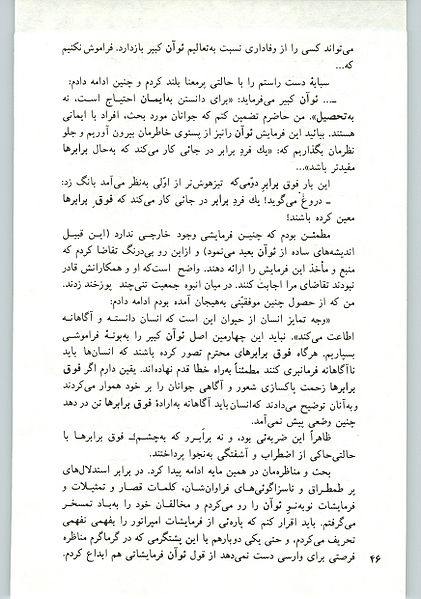 می‌تواند کسی را از وفاداری نسبت به‌تعالیم ئوآن کبیر بازدارد. فراموش نکنیم
که...
سبابهٔ دست راستم را با حالتی پرمعنا بلند کردم و چنین ادامه دادم:
ــ... ئوآن کبیر می‌فرماید: «برای دانستن به‌ایمان احتیاج است، نه
به‌تحصیل». من حاضرم تضمین کنم که جوانان مورد بحث، افراد با ایمانی
هستند. بیائید این فرمایش ئوآن رانیز از پستوی خاطرمان بیرون آوریم و جلو
نظرمان بگذاریم که: «یك فرد برابر در جائی کار می‌کند که به‌حال برابرها
مفیدتر باشد»...
این بار فوق برابر دوّمی‌که تیزهوش‌تر از اوّلی به‌نظر می‌آمد بانگ زد:
ــ دروغ می‌گوید! یك فرد برابر در جائی کار می‌کند که فوق برابرها
معین کرده باشند!
مطمئن بودم که چنین فرمایشی وجود خارجی ندارد (این قبیل
اندیشه‌های ساده از ئوآن بعید می‌نمود) و ازاین رو بی‌درنگ تقاضا کردم که
منبع و مأخذ این فرمایش را ارائه دهند. واضح است‌که او و همکارانش قادر
نبودند تقاضای مرا اجابت کنند. در میان انبوه جمعیت تنی‌چند پوزخند زدند.
من که از حصول چنین موفقیّتی به‌هیجان آمده بودم ادامه دادم:
«وجه تمایز انسان از حیوان این است که انسان دانسته و آگاهانه
اطاعت می‌کند». نباید این چهارمین اصل ئوآن کبیر را به‌بوتهٔ فراموشی
بسپاریم. هرگاه فوق برابرهای محترم تصور کرده باشند که انسان‌ها باید
ناآگاهانه فرمانبری کنند مطمئناً به‌راه خطا قدم نهاده‌اند. یقین دارم اگر فوق
برابرها زحمت پاکسازی شعور و آگاهی جوانان را بر خود هموار می‌کردند
وبه‌آنان توضیح می‌دادند که‌انسان‌باید آگاهانه به‌ارادهٔ فوق برابرها تن در دهد
چنین وضعی پیش نمی‌آمد.
ظاهراً این ضربه‌ئی بود، و نه برابرو که به‌چشم! فوق برابرها با
حالتی‌حاکی از اضطراب و آشفتگی به‌نجوا پرداختند.
بحث و مناظره‌مان در همین مایه ادامه پیدا کرد. در برابر استدلال‌های
پر طمطراق و ناسزاگوئی‌های فراوان‌شان، کلمات قصار و تمثیلات و
فرمایشات نوبه‌نو ئوآن را رو می‌کردم و مخالفان خود را به‌باد تمسخر
می‌گرفتم. باید اقرار کنم که پاره‌ئی از فرمایشات امپراتور را بفهمی نفهمی
تحریف می‌کردم، و حتی یکی دوبارهم با این پشتگرمی که در گرماگرم مناظره
فرصتی برای وارسی دست نمی‌دهد از قول ئوآن فرمایشاتی هم ابداع کردم.
۴۶